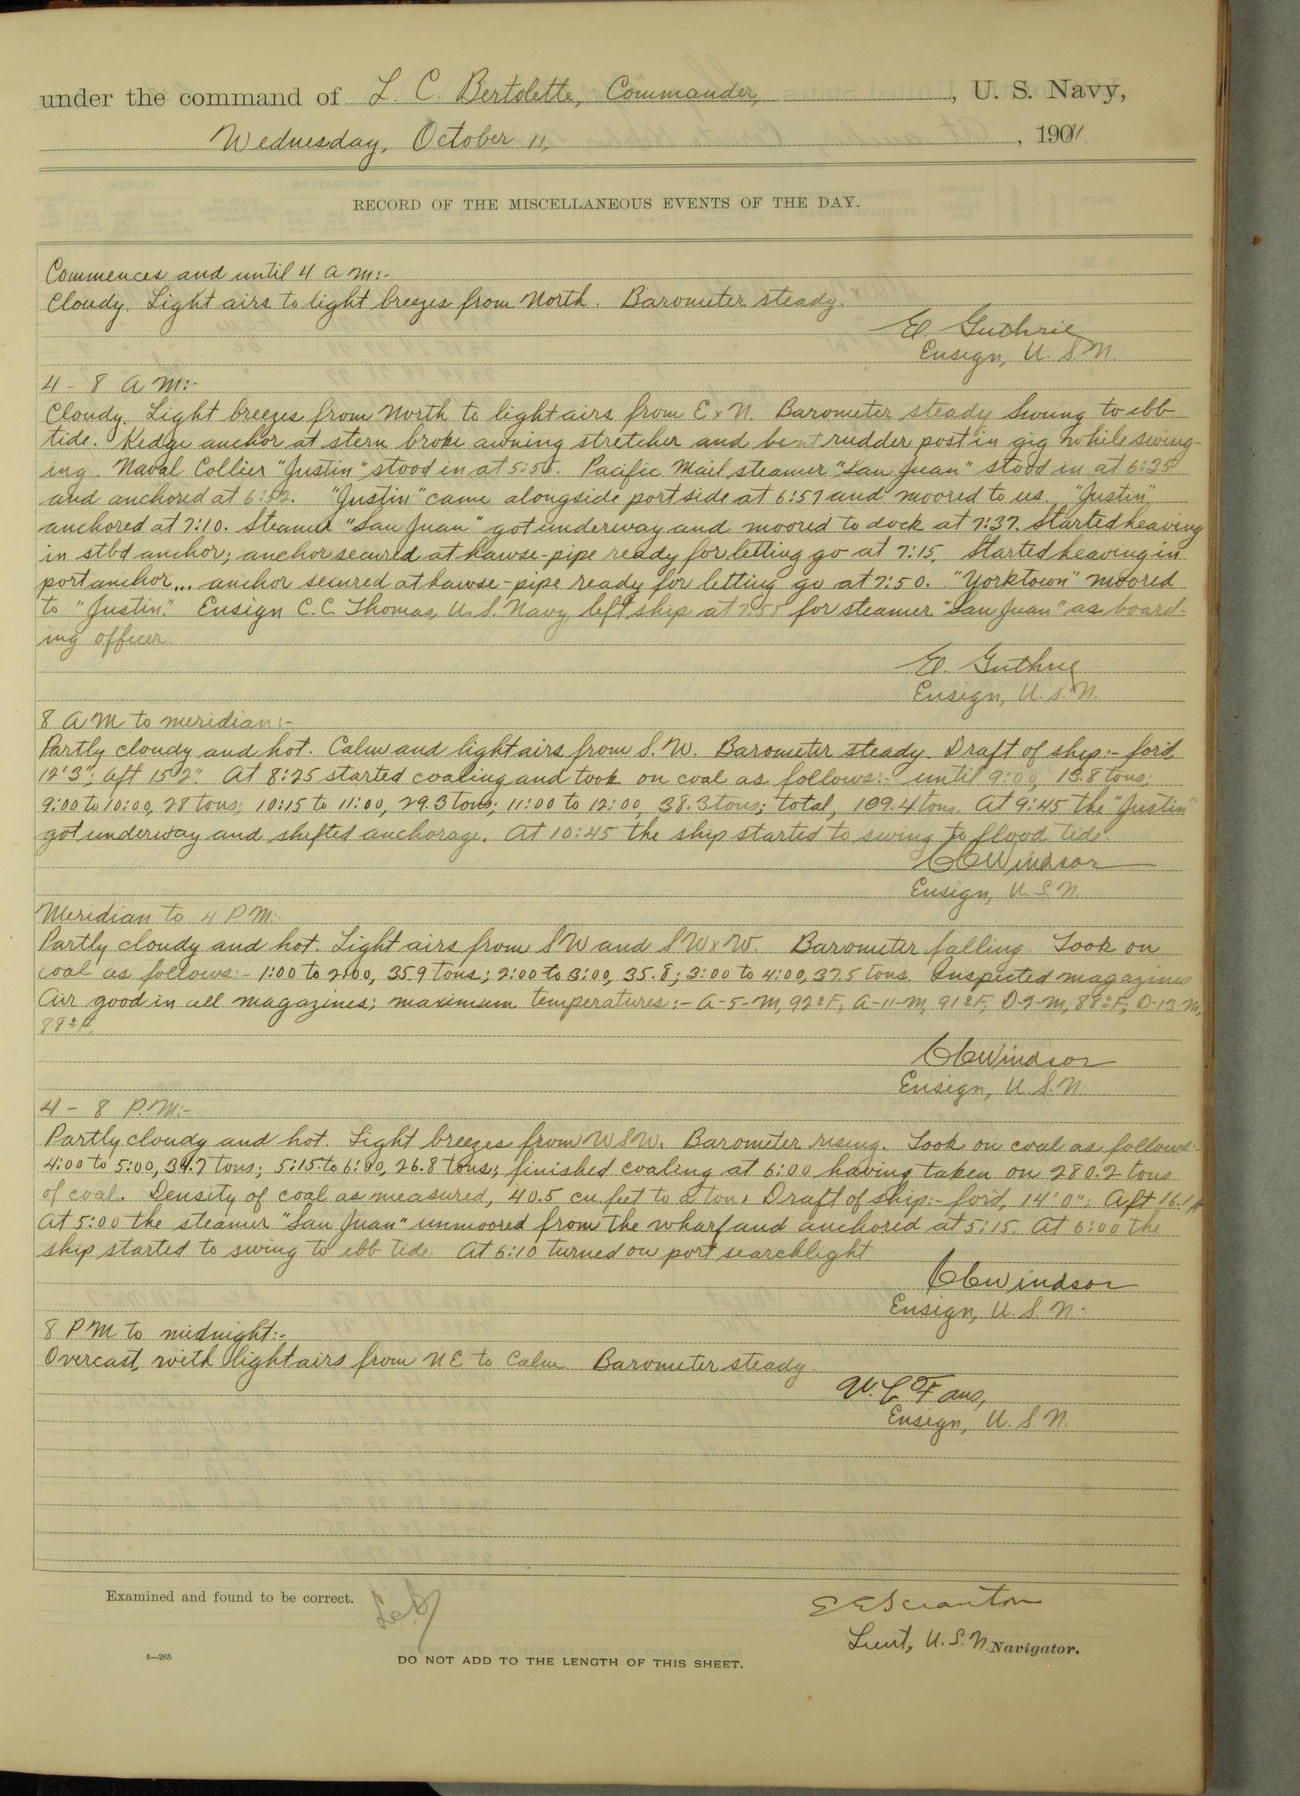 under the command of L. C. Bertolette, Commander, , U. S. Navy,
Wednesday, October 11, , 1901
RECORD OF THE MISCELLANEOUS EVENTS OF THE DAY.
Commences and until 4 a m:-
Cloudy. Light airs to light breezes from North. Barometer steady.
E. Guthrie
Ensign, U. S. N.
4 - 8 a m:-
Cloudy. Light breezes from North to light airs from E x N. Barometer steady Swung to ebb
tide. Kedge anchor at stern broke awning stretcher and bent rudder post in gig while swing-
ing. Naval Collier "Justin" stood in at 5:50. Pacific Mail steamer "San Juan" stood in at 6:35
and anchored at "Justin" came alongside port side at 6:57 and moored to us. "Justin"
anchored at 7:10. Steamer "San Juan" got underway and moored to dock at 7:37. Started heaving
in stbd anchor; anchor secured at hawse-pipe ready for letting go at 7:15. Started heaving in
port anchor... anchor secured at hawse-pipe ready for letting go at 7:50. "Yorktown" moored
to "Justin." Ensign C. C. Thomas, U. S. Navy, left ship at 7:55 for steamer "San Juan" as board-
ing officer.
E. Guthrie
Ensign, U. S. N.
8 A M to meridian:-
Partly cloudy and hot. Calm and light airs from S. W. Barometer steady. Draft of ship:- for'd,
12'3"; aft 15'2". At 8:25 started coaling and took on coal as follows:- until 9:00, 13.8 tons;
9:00 to 10:00, 28 tons; 10:15 to 11:00, 29.3 tons; 11:00 to 12:00, 38.3 tons; total, 109.4 tons. At 9:45 the "Justin"
got underway and shifted anchorage. At 10:45 the ship started to swing to flood tide.
C C Windsor
Ensign, U. S. N.
Meridian to 4 P M:
Partly cloudy and hot. Light airs from SW and SW x W. Barometer falling. Took on
coal as follows:- 1:00 to 2:00, 35.9 tons; 2:00 to 3:00, 35.8; 3:00 to 4:00, 37.5 tons. Inspected magazines
Air good in all magazines; maximum temperatures:- A-5-M, 92°F, A-11-M, 91°F, D-9-M, 88°F, D-13-M,
88°F.
C C Windsor
Ensign, U. S. N.
4 - 8 P. M:-
Partly cloudy and hot. Light breezes from W S W. Barometer rising. Took on coal as follows:-
4:00 to 5:00, 34.7 tons; 5:15 to 6:00, 26.8 tons; finished coaling at 6:00 having taken on 280.2 tons
of coal. Density of coal as measured, 40.5 cu feet to a ton. Draft of ship:- for'd, 14'0"; Aft
At 5:00 the steamer "San Juan" unmoored from the wharf and anchored at 5:15. At 6:00 the
ship started to swing to ebb tide. At 6:10 turned on port searchlight
C C Windsor
Ensign, U. S. N.
8 P M to midnight:-
Overcast, with light airs from N E to Calm. Barometer steady.
Ensign, U. S. N.
Examined and found to be correct.
E E Scranton
Lieut, U. S. N. Navigator.
4—265
DO NOT ADD TO THE LENGTH OF THIS SHEET.